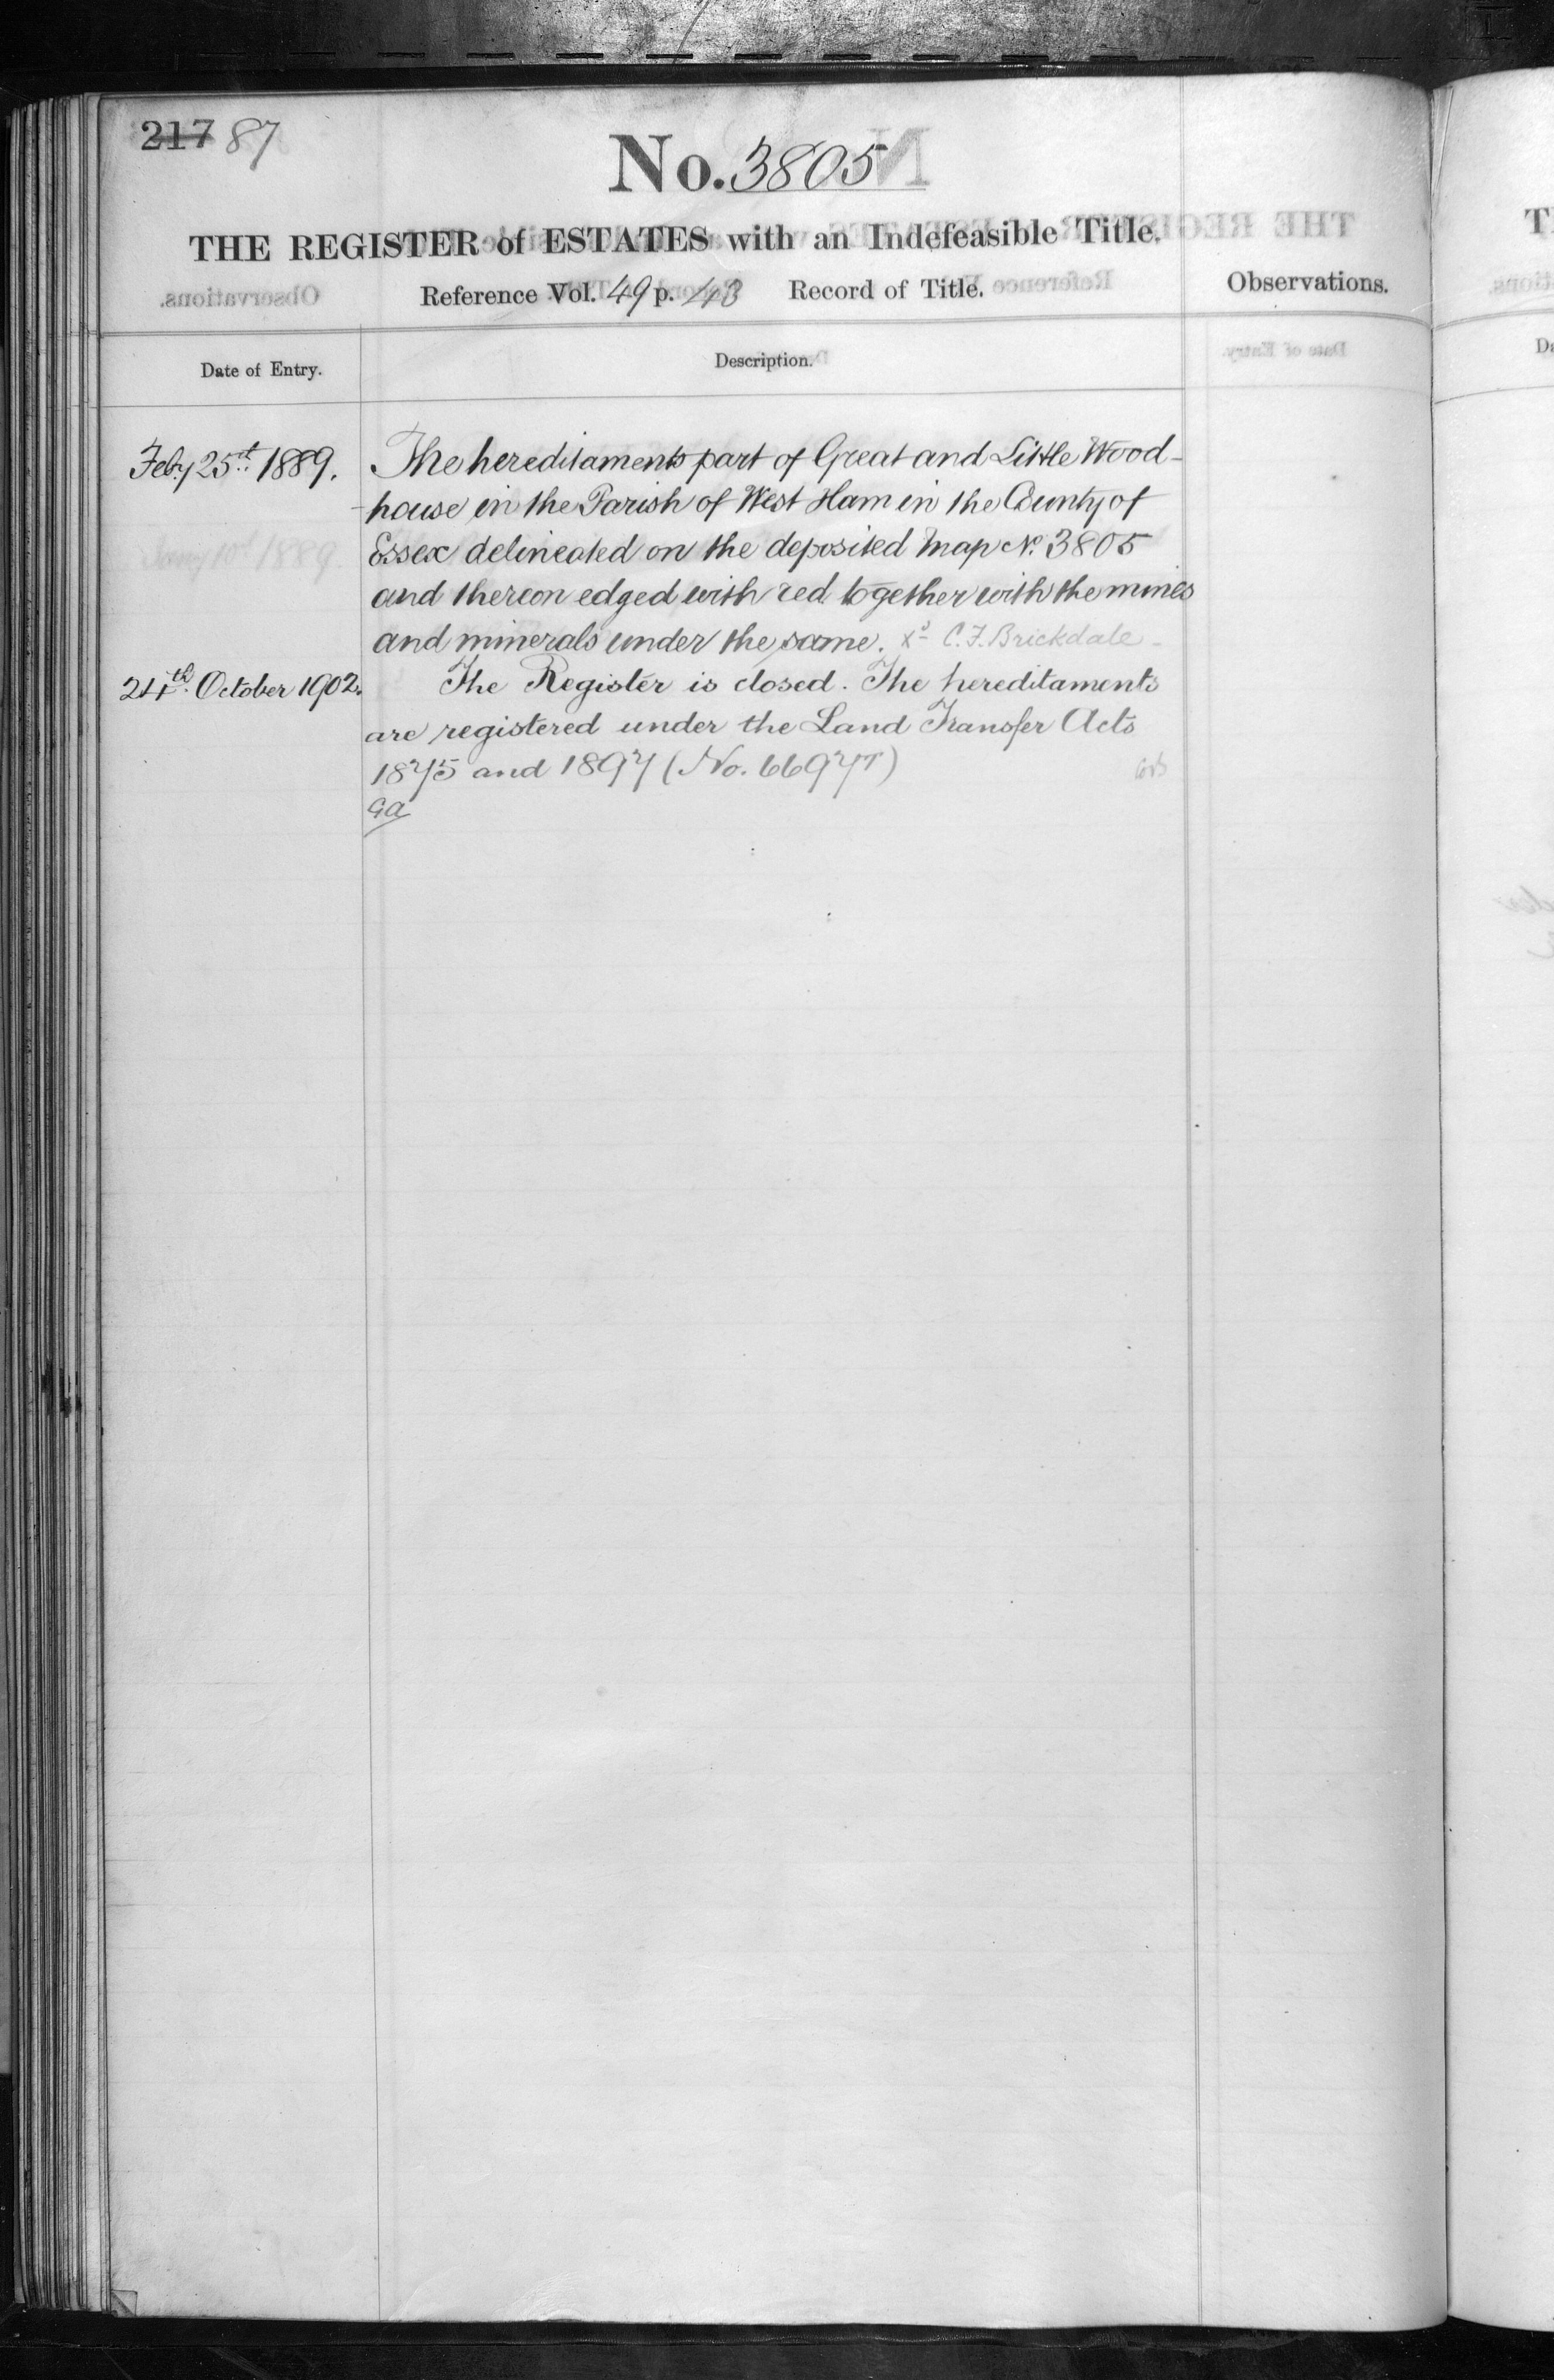 217 87
No. 3805
THE REGISTER of ESTATES with an Indefeasible Title.
Reference Vol. 49 p. 43 Record of Title.
Observations.
Date of Entry.
Description.
Feby 25th 1889.
The hereditaments part of Great and Little Wood-
house in the Parish of West Ham in the County of
Essex delineated on the deposited Map No. 3805
and thereon edged with red together with the mines
and minerals under the same. Xd C.F. Brickdale
24th October 1902.
The Register is closed. The hereditaments
are registered under the Land Transfer Acts
1875 and 1897 (No. 6697T)
GA